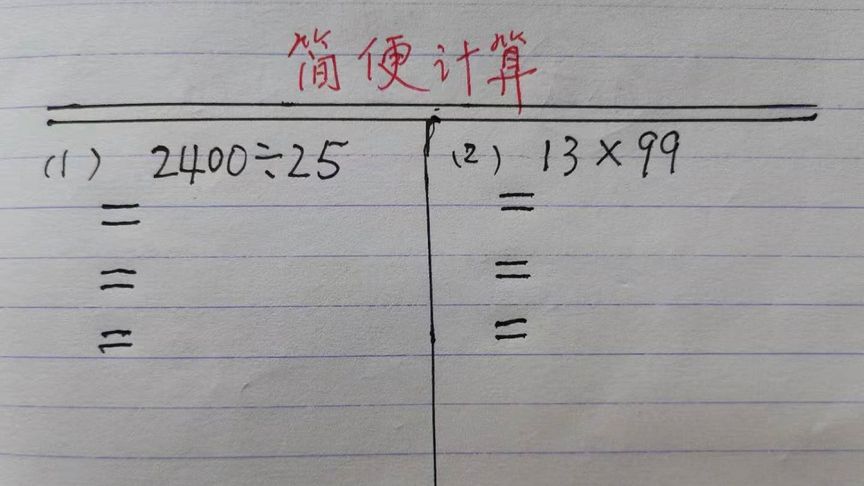 简便计算
(1) 2400÷25
=
=
=
(2) 13×99
=
=
=